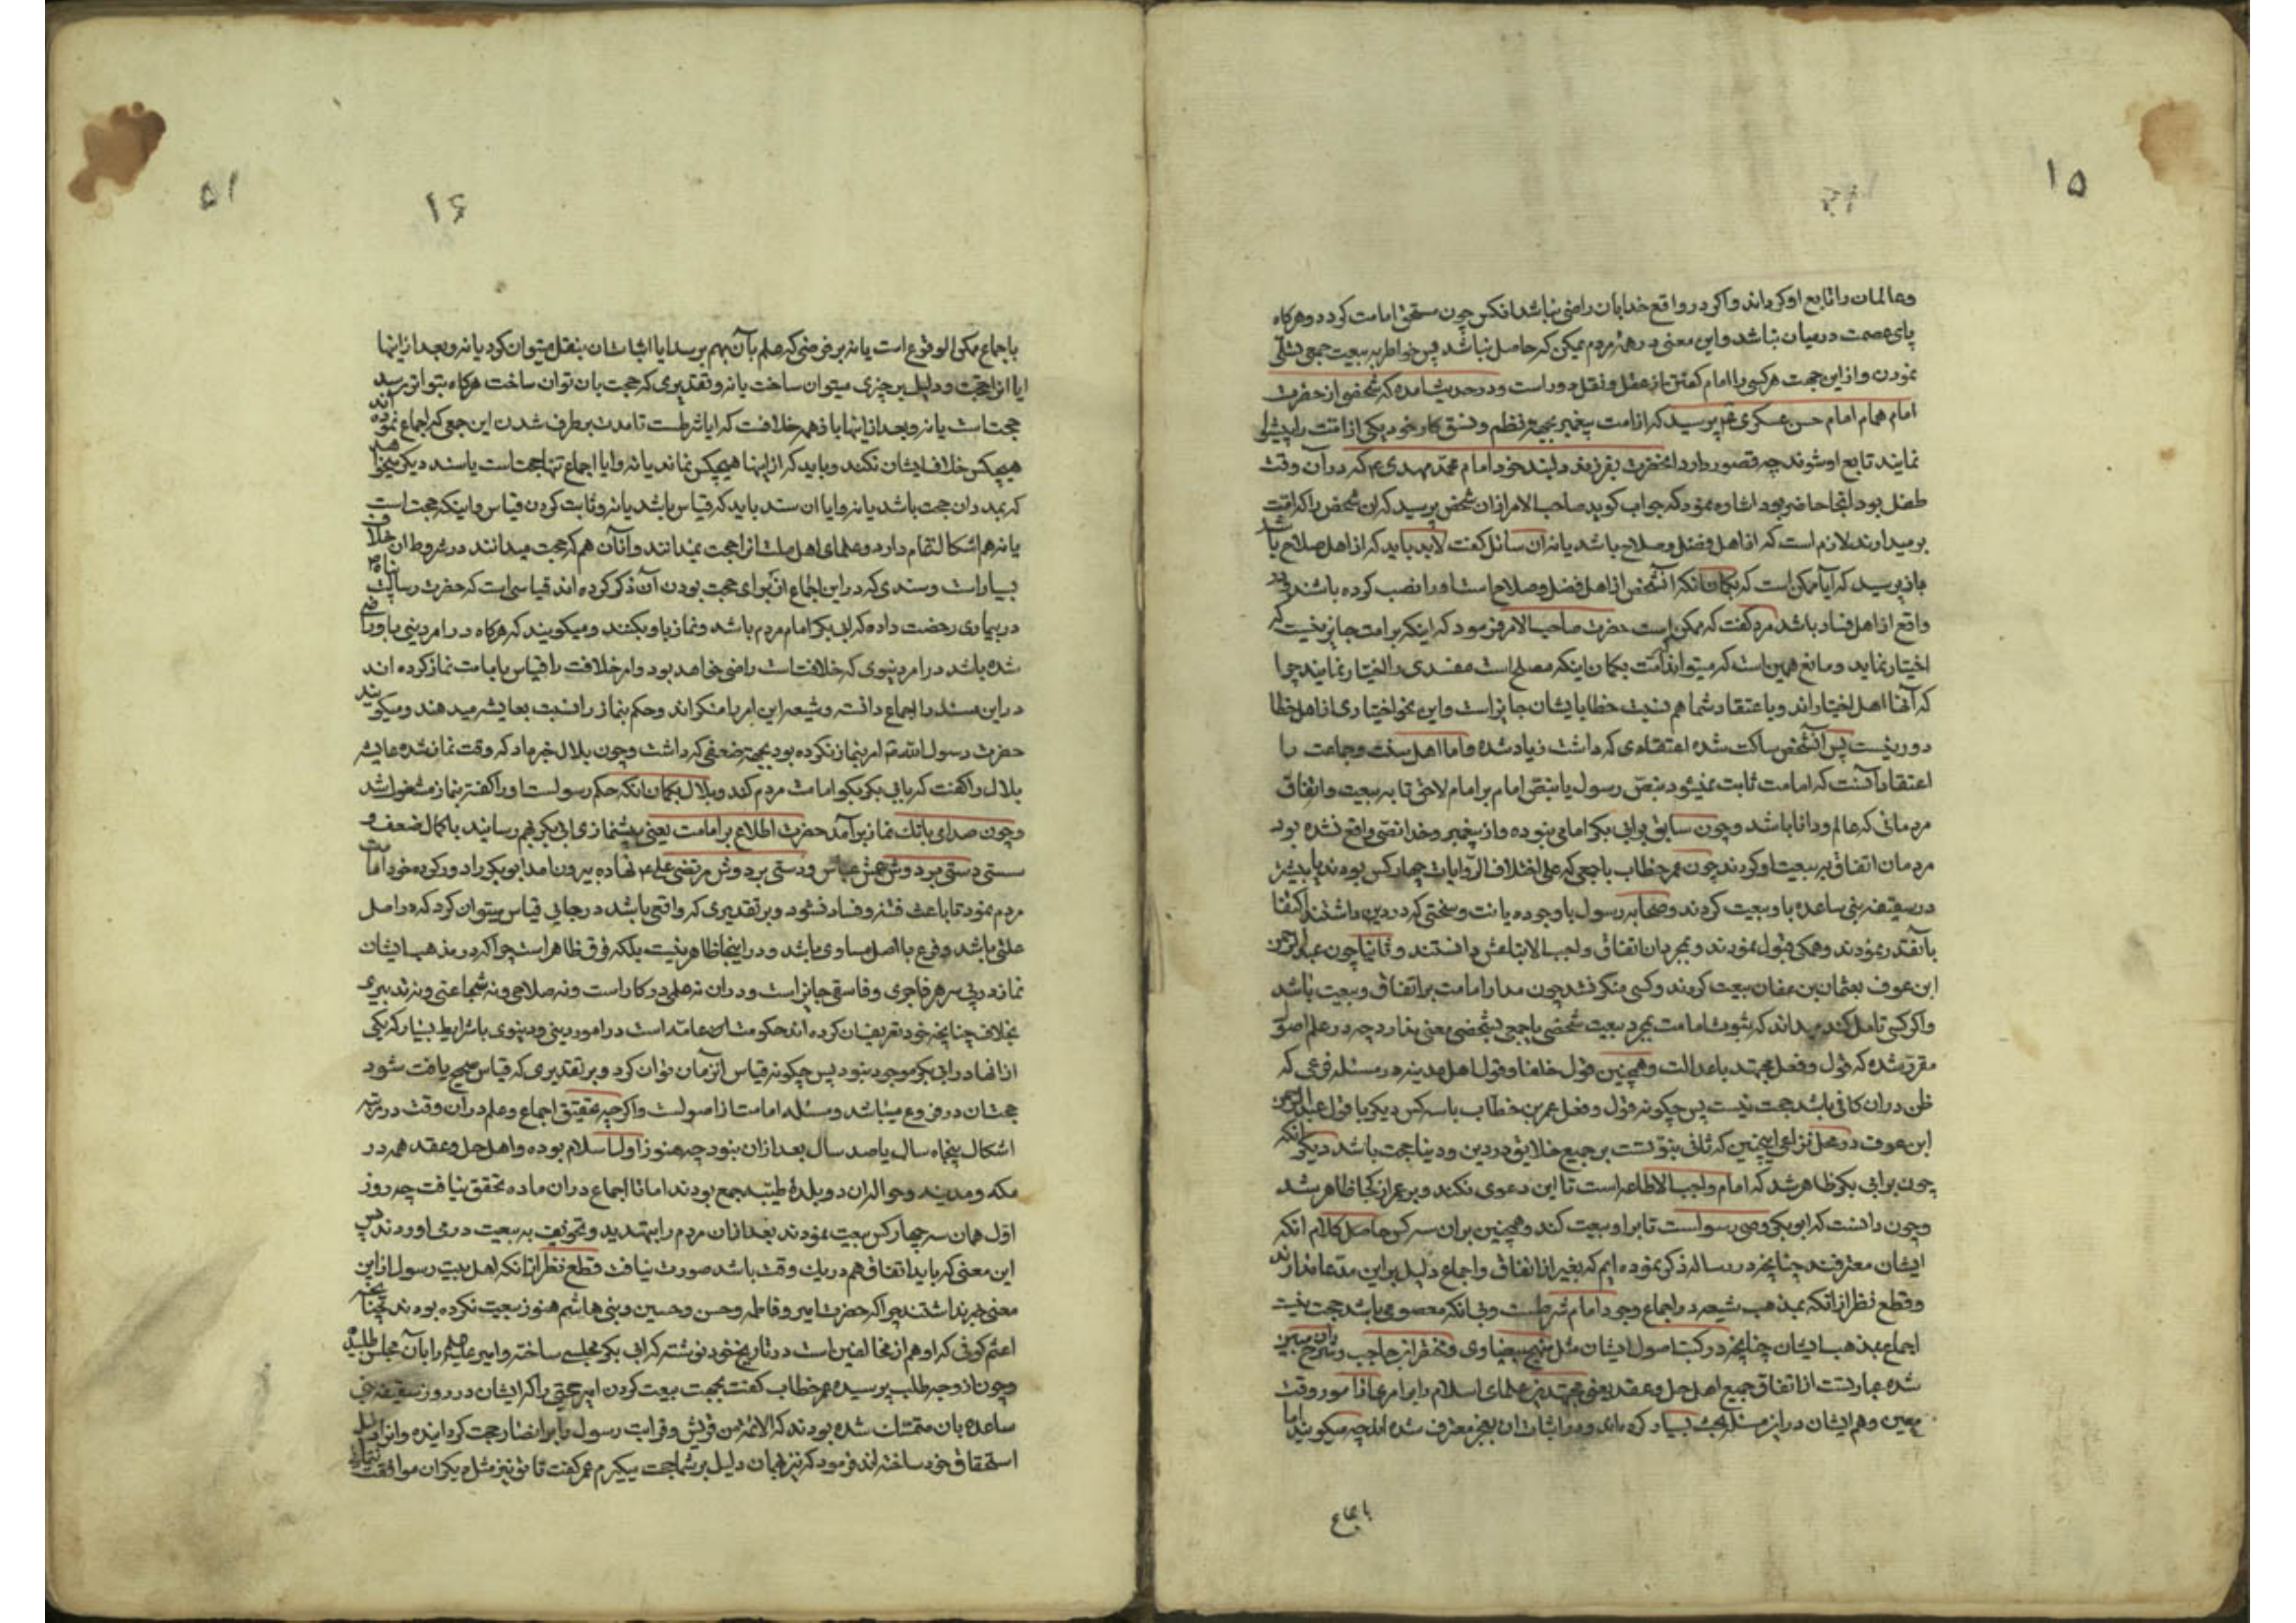 ۱۵
وعالمان را تابع او کرداند و اکر در واقع خدا بان راضی نباشد انکس چون مستحق امامت کردد و هرکاه
پای عصمت در میان نباشد و این معنی در همه مردم ممکن که حاصل نباشد پس خواطر به بیعت جمعی تسلی
نمودن و از این جهت هرکسی را امام کفتن از عقل و نقل دور است و در حدیث امده که شخصی از حضرت
امام همام امام حسن عسکری پرسید که از امت پیغمبر بجهة نظم و نسق کار خود یکی از امت را پیشوا
نمایند تابع او شوند چه قصور دارد انحضرت بفرزند دلبند خود امام محمد مهدی ع که در آن وقت
طفل بود انجا حاضر بود اشاره نمود که جواب کوید صاحب الامر ازان شخص پرسید که ان شخص را که امت
برمیدارند لازم است که از اهل فضل و صلاح باشد یا نه ان سائل کفت لابد باید که از اهل صلاح باشد
باز پرسید که آیا ممکن است که بکمان انکه انشخص از اهل فضل و صلاح است او را نصب کرده باشند و در
واقع از اهل فساد باشد مرد کفت که ممکن است حضرت صاحب الامر فرمود که اینکه بر امت جایز نیست که
اختیار نماید و مانع همین است که میتواند امت بکمان اینکه مصلح است مفسدی را اختیار نمایند چرا
که آنها اهل اختیاراند و باعتقاد شما هم نسبت خطا بایشان جایز است و این نحو اختیاری از اهل خطا
دور نیست پس آنشخص ساکت شده اعتقادی که داشت زیاد شده و اما اهل سنت و جماعت را
اعتقاد آنست که امامت ثابت نمیشود بنص رسول یا بنص امام بر امام لاحق تا به بیعت و اتفاق
مردمانی که عالم و دانا باشد و چون سابق بر ابی بکر امامی نبوده و از پیغمبر و خدا نصی واقع نشده بود
مردمان اتفاق به بیعت او کردند چون عمر خطاب با جمعی که علی اختلاف الروایات چهار کس بودند یا بیشتر
در سقیفه بنی ساعده باو بیعت کردند و صحابه رسول با وجوده یانت و سختی که در دین داشتند اکتفا
بآنقدر نمودند و همکی قبول نمودند و بمجرد ان اتفاق واجب الاتباعش دانستند و ثانیا چون عبد الرحمن
ابن عوف بعثمان بن عفان بیعت کردند و کسی منکر نشد چون مدار امامت بر اتفاق و بیعت باشد
و اکر کسی تامل کند میداند که ثبوت امامت بمجرد بیعت شخصی یا جمعی بشخصی معنی ندارد چه در علم اصول
مقرر شده که قول و فعل مجتهد باعدالت و همچنین قول خلفا و قول اهل مدینه در مسئله فرعی که
ظن دران کافی باشد حجت نیست پس چکونه قول و فعل عمر بن خطاب با سه کس دیکر یا قول عبد الرحمن
ابن عوف در محل نزاعی اینچنین که ثانی نبوتست بر جمیع خلایق در دین و دنیا حجت باشد دیکر انکه
چون بر ابی بکر ظاهر شد که امام واجب الاطاعه است تا این دعوی نکند و بر عمر از کجا ظاهر شد
و چون دانست که ابوبکر وصی رسولست تا برا و بیعت کند و همچنین بران سه کس حاصل کلام انکه
ایشان معترفند چنانچه در رساله ذکر نموده ایم که بغیر از اتفاق و اجماع دلیل بر این مدعا ندارند
و قطع نظر از انکه بمذهب شیعه در اجماع وجود امام شرطست و بی انکه معصومی باشد حجت نیست
اجماع بمذهب ایشان چنانچه در کتب اصول ایشان مثل منهج بیضاوی و مختصر ابن حاجب و شرح مبین
شده عبارتست از اتفاق جمیع اهل حل و عقد یعنی مجتهدین علمای اسلام را بر امری از امور در وقت
معین و هم ایشان در این مسئله بحث بسیار کرده اند و در اثبات ان بعجز معترف شده اند چه میکویند ایا
باجماع
۵۱
۱۶
باجماع ممکن الوقوع است یا نه بر فرضی که علم بآن بهم برسد ایا اثبات شان بنقل میتوان کرد یا نه و بعد از اینها
ایا انرا حجت و دلیل بر چیزی میتوان ساخت یا نه و تقدیری که حجت بان توان ساخت هرکاه بتواتر برسد
حجت است یا نه و بعد از اینها باز همه خلافت که ایا شرطست تا مدت برطرف شدن این جمعی که اجماع نموده اند
هیچکس خلاف ایشان نکند و باید که از اینها هیچکس نماند یا نه و ایا اجماع تنها حجت است یا سند دیکر میخواهد
که بمدد ان حجت باشد یا نه و ایا ان سند باید که قیاس باشد یا نه و ثابت کردن قیاس و اینکه حجت است
یا نه هم اشکال تمام دارد و علمای اهل ملت انرا حجت نمیدانند و انان هم که حجت میدانند در شروط ان خلاف
بسیار است و سندی که در این اجماع از برای حجت بودن آن ذکر کرده اند قیاسی است که حضرت رسالت پناه ص
در بیماری رخصت داده که ابی بکر امام مردم باشد و نماز باو بکنند و میکویند که هرکاه در امر دینی باو راضی
شده باشد در امر دنیوی که خلافت است راضی خواهد بود و امر خلافت را قیاس بامامت نماز کرده اند
در این مسئله را اجماع دانسته و شیعه این امر را منکراند و حکم بنماز را نسبت بعایشه میدهند و میکویند
حضرت رسول الله امر بنماز نکرده بود بجهة ضعفی که داشت و چون بلال خبر داد که وقت نماز شده عایشه
بلال را کفت که بابی بکر بکو امامت مردم کند و بلال بکمان انکه حکم رسولست او را کفته بنماز مشغول شد
و چون صدای بانک نماز برآمد حضرت اطلاع بر امامت یعنی پیشنمازی ابی بکر بهم رسانید باکمال ضعف و
سستی دستی بر دوش عمش عباس و دستی بر دوش مرتضی علی ع نهاده بیرون امد ابوبکر را دور کرده خود امامت
مردم نمود تا باعث فتنه و فساد نشود و بر تقدیری که واقعی باشد در جایی قیاس میتوان کرد که در اصل
علتی باشد و فرع با اصل مساوی باشد و در اینجا ظاهر نیست بلکه فرق ظاهر است چرا که در مذهب ایشان
نماز در پی سر هر فاجری و فاسقی جایز است و در ان نه علمی در کار است و نه صلاحی و نه شجاعتی و نه تدبیری
بخلاف چنانچه خود تعریف ان کرده اند حکومت عامه است در امور دینی و دنیوی با شرایط بسیار که یکی
از انها در ابی بکر موجود نبود پس چکونه قیاس این زمان توان کرد و بر تقدیری که قیاس صحیح یافت شود
حجت ان در فروع میباشد و مسئله امامت از اصولست و اکرچه تحقیق اجماع و علم در آن وقت در مرتبه
اشکال پنجاه سال یا صد سال بعد ازان نبود چه هنوز اول اسلام بوده و اهل حل و عقد همه در
مکه و مدینه و حوالی ان دو بلدهٔ طیبه جمع بودند اما تا اجماع دران ماده تحقق نیافت چه روز
اول همان سه چهار کس بیعت نمودند بعد ازان مردم را بتهدید و تخویف به بیعت در می اوردند پس
این معنی که باید اتفاق هم در یک وقت باشد صورت نیافت قطع نظر از انکه اهل بیت رسول از این
معنی خبر نداشتند چرا که حضرت امیر و فاطمه و حسن و حسین و بنی هاشم هنوز بیعت نکرده بودند چنانچه
اعثم کوفی که او هم از مخالفین است در تاریخ خود نوشته که ابی بکر مجلسی ساخته و امیر علیه را بآن مجلس طلبیده
و چون از وجه طلب پرسیده عمر خطاب کفت بجهت بیعت کردن امیر حجتی را که ایشان در روز سقیفه بنی
ساعده بان متمسک شده بودند که الائمة من قریش و قرابت رسول را بر انصار حجت کردانیده و انرا دلیل
استحقاق خود ساخته اند فرمود که نیز همان دلیل بر شما حجت میکیرم عمر کفت تا تو نیز مثل دیکران موافقت ننمائی